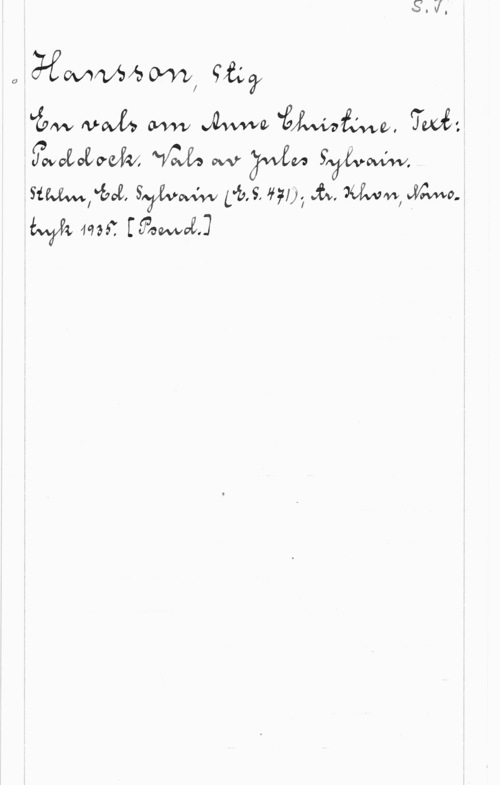 S.J.
Hansson, Stig
En vals om Anne Christine. Text:
Paddock. Vals av Jules Sylvain.
Sthlm, Ed. Sylvain (E.S. 471); tr. Khvn, Nono-
tryk 1935. [Pseud.]